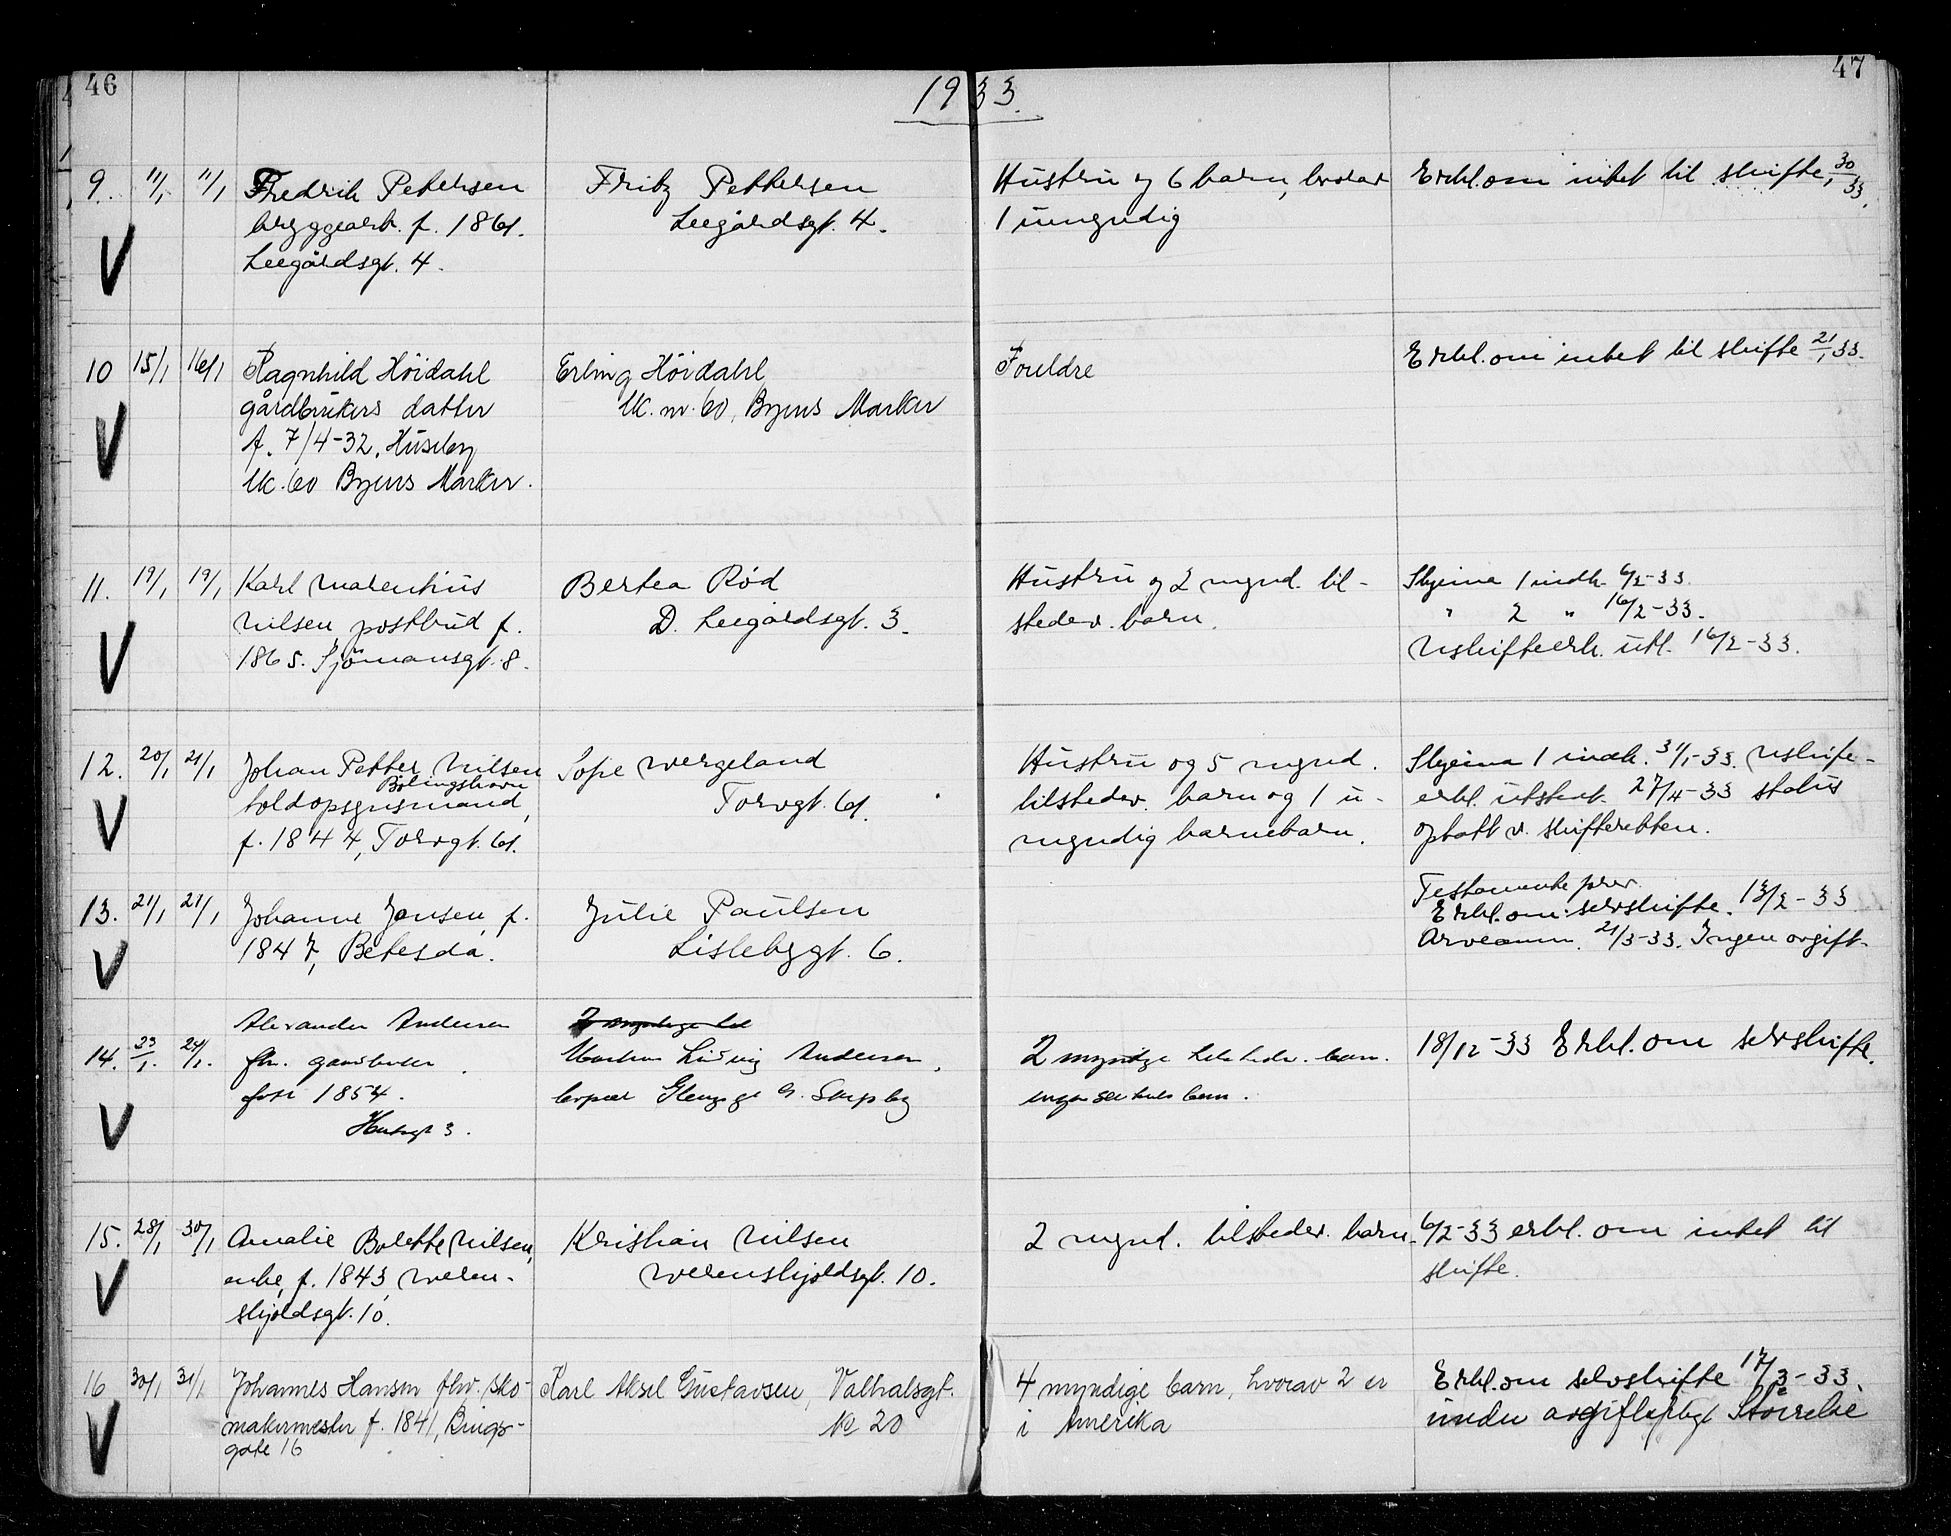 46
47
1933.
9. 11/1 11/1 Fredrik Petersen
bryggearb. f. 1861.
Leegårdsgt. 4.
Fritz Pettersen
Leegårdsgt. 4.
Hustru og 6 barn, hvorav
1 umyndig
Erkl. om intet til skifte, 30/1 33.
10 15/1 16/1 Ragnhild Höidahl
gårdbrukers datter
f. 7/4-32, Huseby
Uk. 60 Byens Marker.
Erling Höidahl
Uk. nr. 60, Byens Marker
Foreldre
Erkl. om intet til skifte 21/1 33.
11. 19/1 19/1 Karl Marenhius
Nilsen, postbud f.
1865. Sjömansgt. 8.
Bertea Rød
D. Leegårdsgt. 3.
Hustru og 2 mynd. til-
stedev. barn.
Skjema 1 indk. 6/2-33.
" 2 " 16/2-33.
Uskifteerk. utl. 16/2-33.
12. 20/1 21/1 Johan Petter Nilsen
Bölingshavn
toldopsynsmand,
f. 1844, Torvgt. 61.
Sofie Wergeland
Torvgt. 61.
Hustru og 5 mynd.
tilstedev. barn og 1 u-
myndig barnebarn.
Skjema 1 indk. 31/1-33. Uskifte-
erkl. utstedt 27/4-33 status
optatt v. skifteretten.
13. 21/1 21/1 Johanne Jensen, f.
1847, Betesda.
Julie Paulsen
Lislebygt. 6.
Testamente
Erkl. om selvskifte. 13/2-33
Arveanm. 21/3-33. Ingen avgift.
14. 23/1. 24/1. Alexander Andersen
fhv. gaardbruker
född 1854.
3.
Ludvig Andersen,
Glemmen
2 myndige tilstedev. barn.
barn.
18/12-33 Erkl. om selvskifte.
15. 28/1 30/1 Amalie Bolette Nilsen,
enke, f. 1843, Weren-
skjoldsgt. 10.
Kristian Nilsen
Werenskjoldsgt. 10.
2 mynd. tilstedev. barn.
6/2-33 erkl. om intet til
skifte.
16 30/1 31/1 Johannes Hansen fhv. sko-
makermester f. 1841, Rings-
gate 16
Karl Aksel Gustavsen, Valhalsgt.
No 20
4 myndige barn, hvorav 2 er
i Amerika
Erkl. om selvskifte 17/3-33.
under avgiftspligt Størrelse